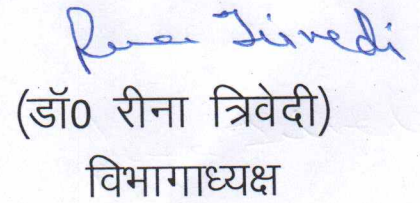 Reena Trivedi
(डॉ0 रीना त्रिवेदी)
विभागाध्यक्ष